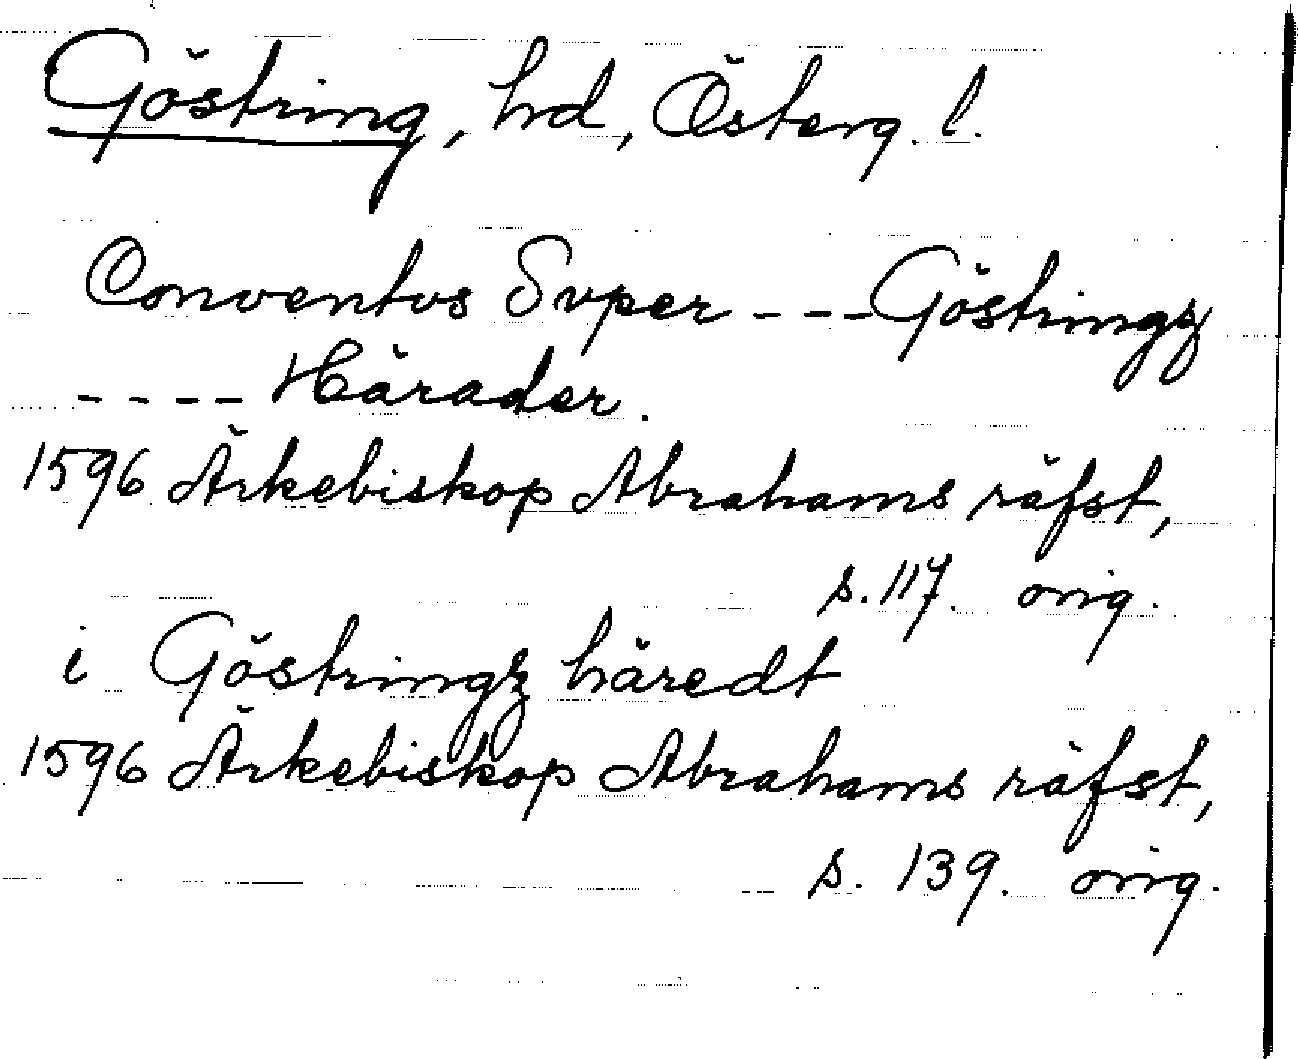 Göstring, hd, Österg. l.
Conventvs Svper - - - Göstringz
- - - - Härader.
1596 Ärkebiskop Abrahams räfst,
s. 117. orig.
i Göstringz häredt
1596 Ärkebiskop Abrahams räfst,
s. 139. orig.